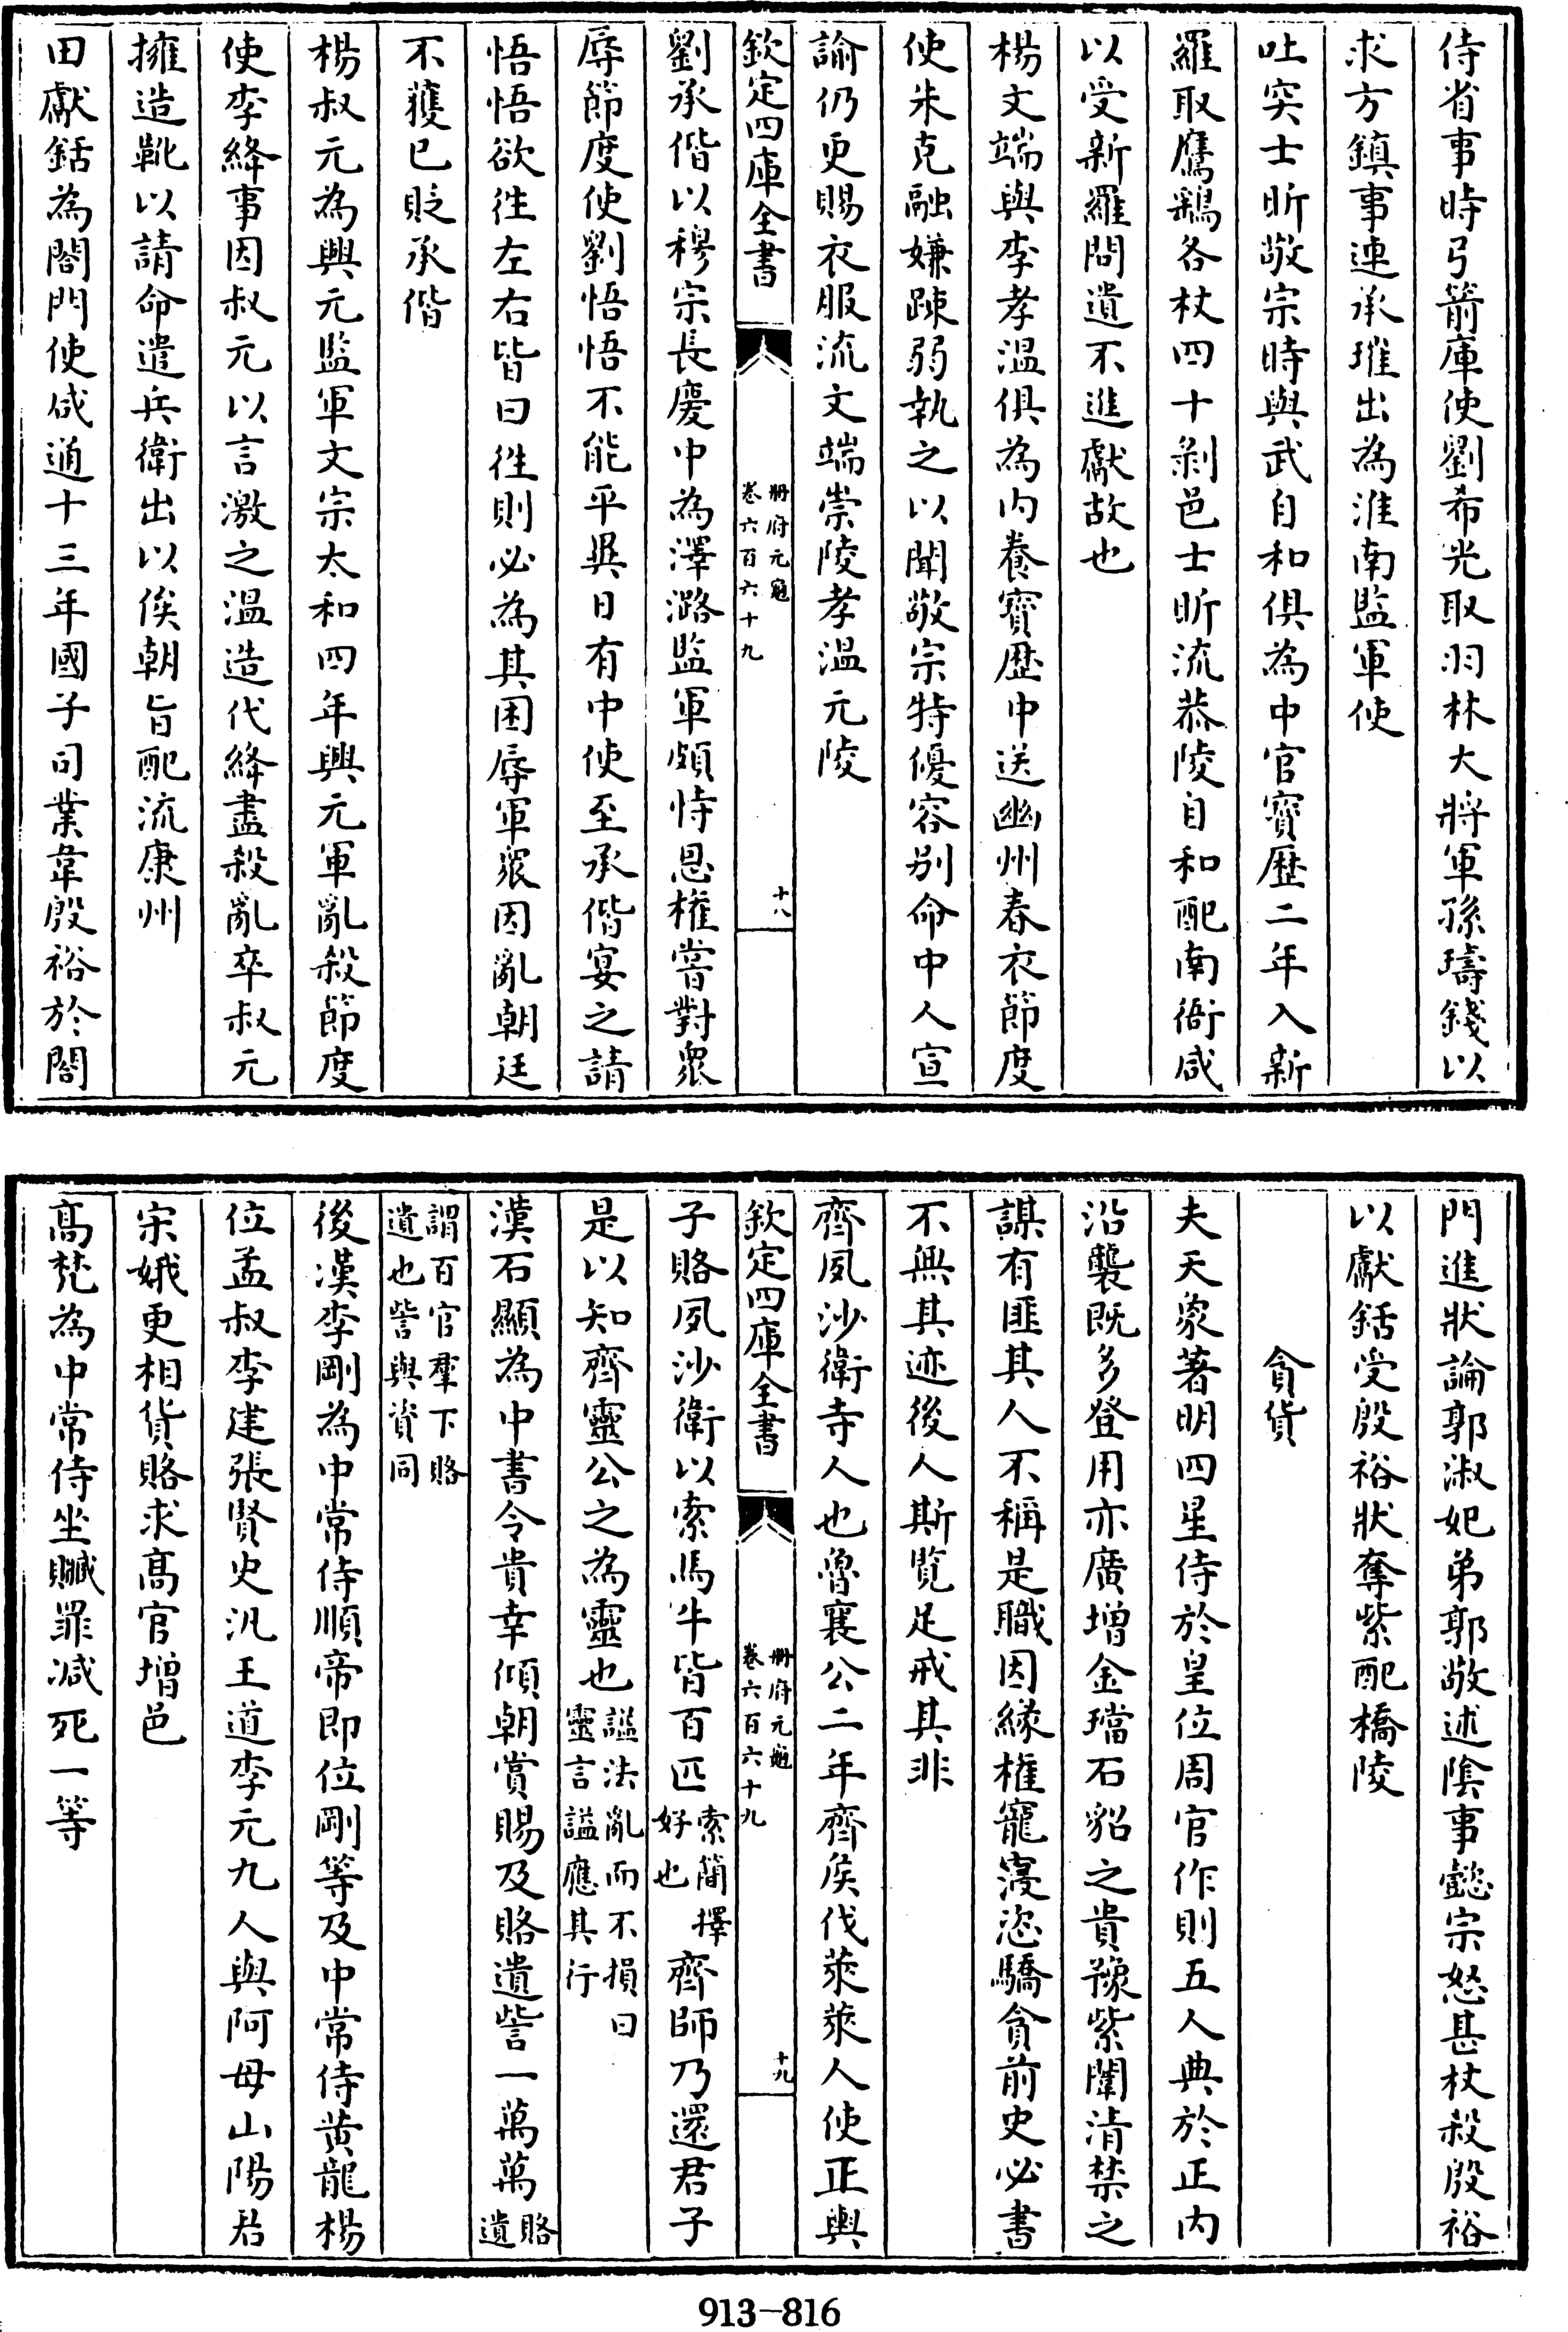 侍省事時弓箭庫使劉希光取羽林大將軍孫璹錢以
求方鎮事連承璀出為淮南監軍使
吐突士昕敬宗時與武自和俱為中官寶歴二年入新
羅取鷹鷂各杖四十剝邑士昕流恭陵自和配南衙咸
以受新羅問遺不進獻故也
楊文端與李孝溫俱為内養寶歴中送幽州春衣節度
使朱克融嫌踈弱執之以聞敬宗特優容别命中人宣
諭仍更賜衣服流文端崇陵孝溫元陵
欽定四庫全書
冊府元龜
卷六百六十九
十八
劉承偕以穆宗長慶中為澤潞監軍頗恃恩權嘗對衆
辱節度使劉悟悟不能平異日有中使至承偕宴之請
悟悟欲徃左右皆曰徃則必為其困辱軍衆因亂朝廷
不獲已貶承偕
楊叔元為興元監軍文宗太和四年興元軍亂殺節度
使李絳事因叔元以言激之溫造代絳盡殺亂卒叔元
擁造靴以請命遣兵衛出以俟朝旨配流康州
田獻銛為閤門使咸通十三年國子司業韋殷裕於閤
門進狀論郭淑妃弟郭敬述隂事懿宗怒甚杖殺殷裕
以獻銛受殷裕狀奪紫配橋陵
貪貨
夫天象著明四星侍於皇位周官作則五人典於正内
沿襲既多登用亦廣增金璫石貂之貴豫紫闥清禁之
謀有匪其人不稱是職因緣權寵寖恣驕貪前史必書
不無其迹後人斯覧足戒其非
齊夙沙衛寺人也魯襄公二年齊侯伐萊萊人使正輿
欽定四庫全書
冊府元龜
卷六百六十九
十九
子賂夙沙衛以索馬牛皆百匹索簡擇好也齊師乃還君子
是以知齊靈公之為靈也諡法亂而不損曰靈言諡應其行
漢石顯為中書令貴幸傾朝賞賜及賂遺訾一萬萬賂遺
謂百官羣下賂遺也訾與資同
後漢李剛為中常侍順帝即位剛等及中常侍黄龍楊
位孟叔李建張賢史汎王道李元九人與阿母山陽君
宋娥更相貨賂求高官增邑
高梵為中常侍坐贓罪减死一等
913-816